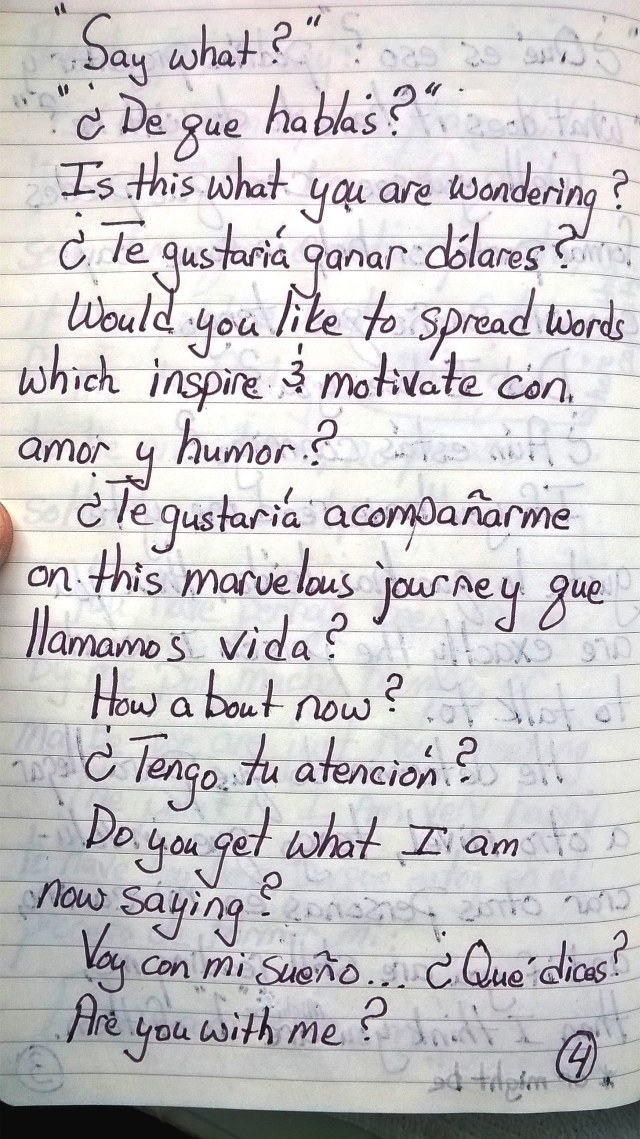 "Say what?"
"¿De que hablas?"
Is this what you are wondering?
¿Te gustariá ganar dólares?
Would you like to spread words
which inspire & motivate con
amor y humor?
¿Te gustariá acompañarme
on this marvelous journey que
llamamos vida?
How about now?
¿Tengo tu atención?
Do you get what I am
now saying?
Voy con mi sueño... ¿Qué dices?
Are you with me?
4